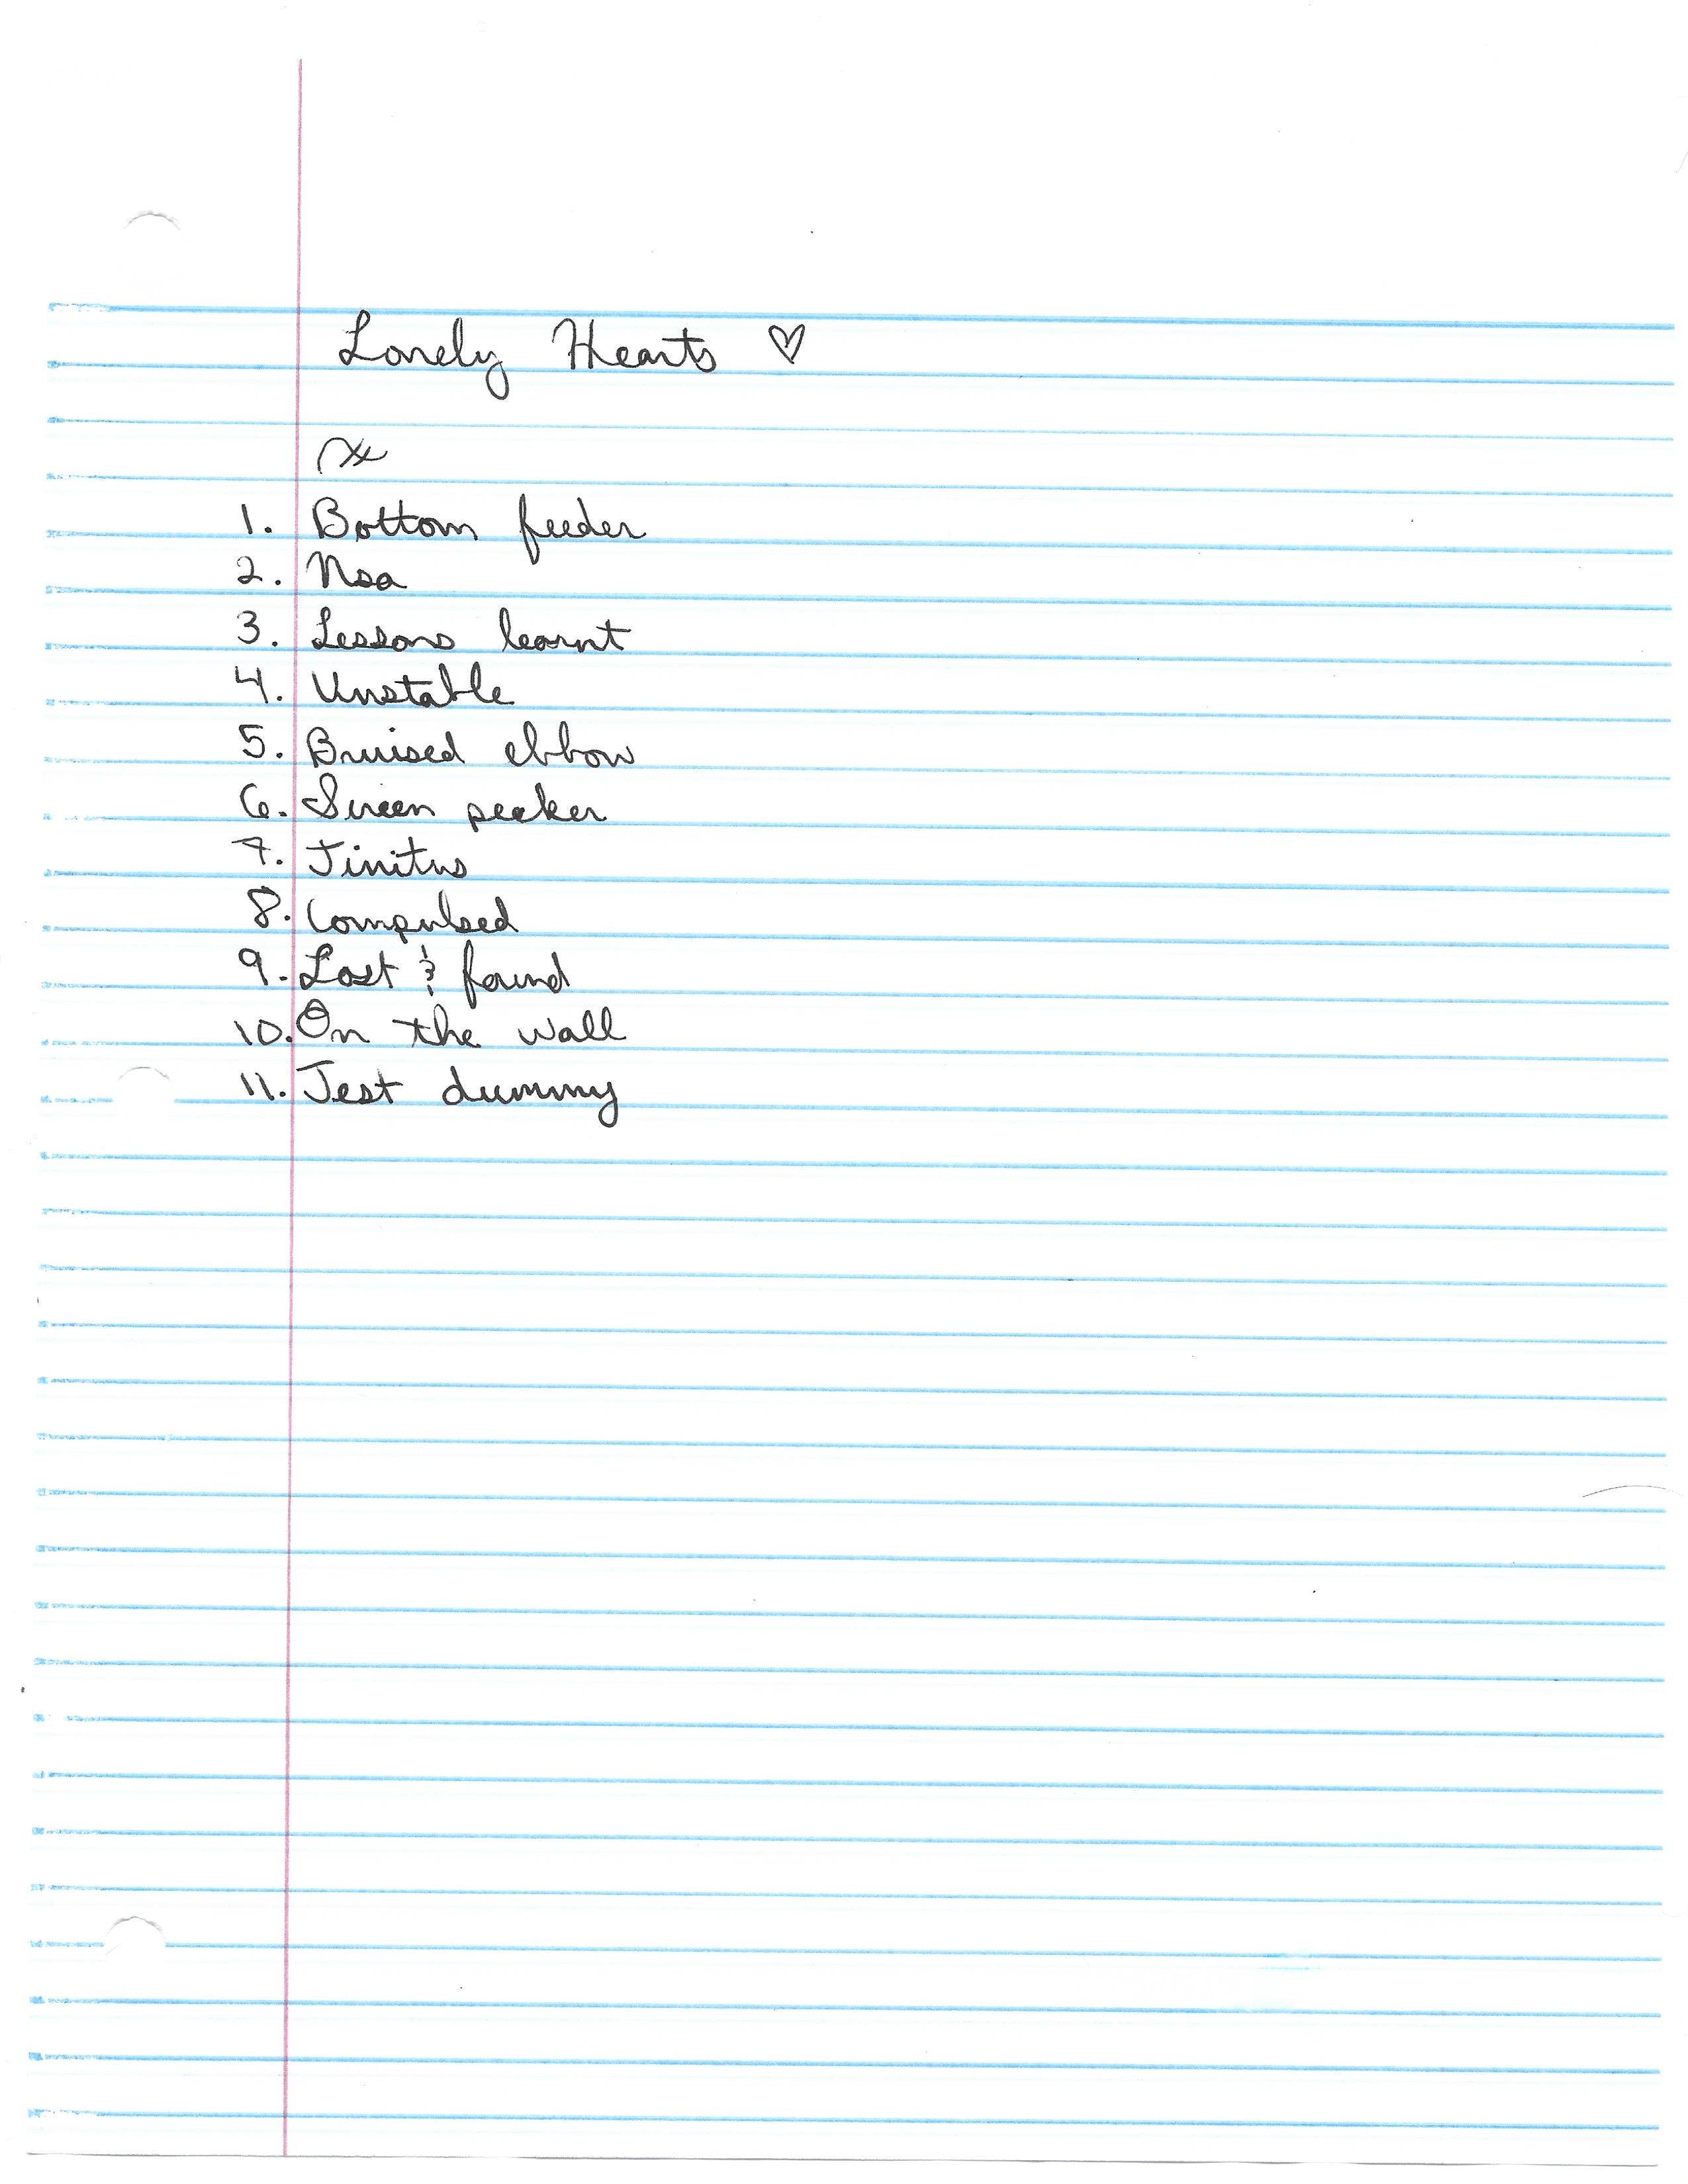 Lonely Hearts ♡
1. Bottom feeder
2. Nsa
3. Lessons learnt
4. Unstable
5. Bruised elbow
6. Screen peeker
7. Tinitus
8. Compulsed
9. Lost & found
10. On the wall
11. Test dummy